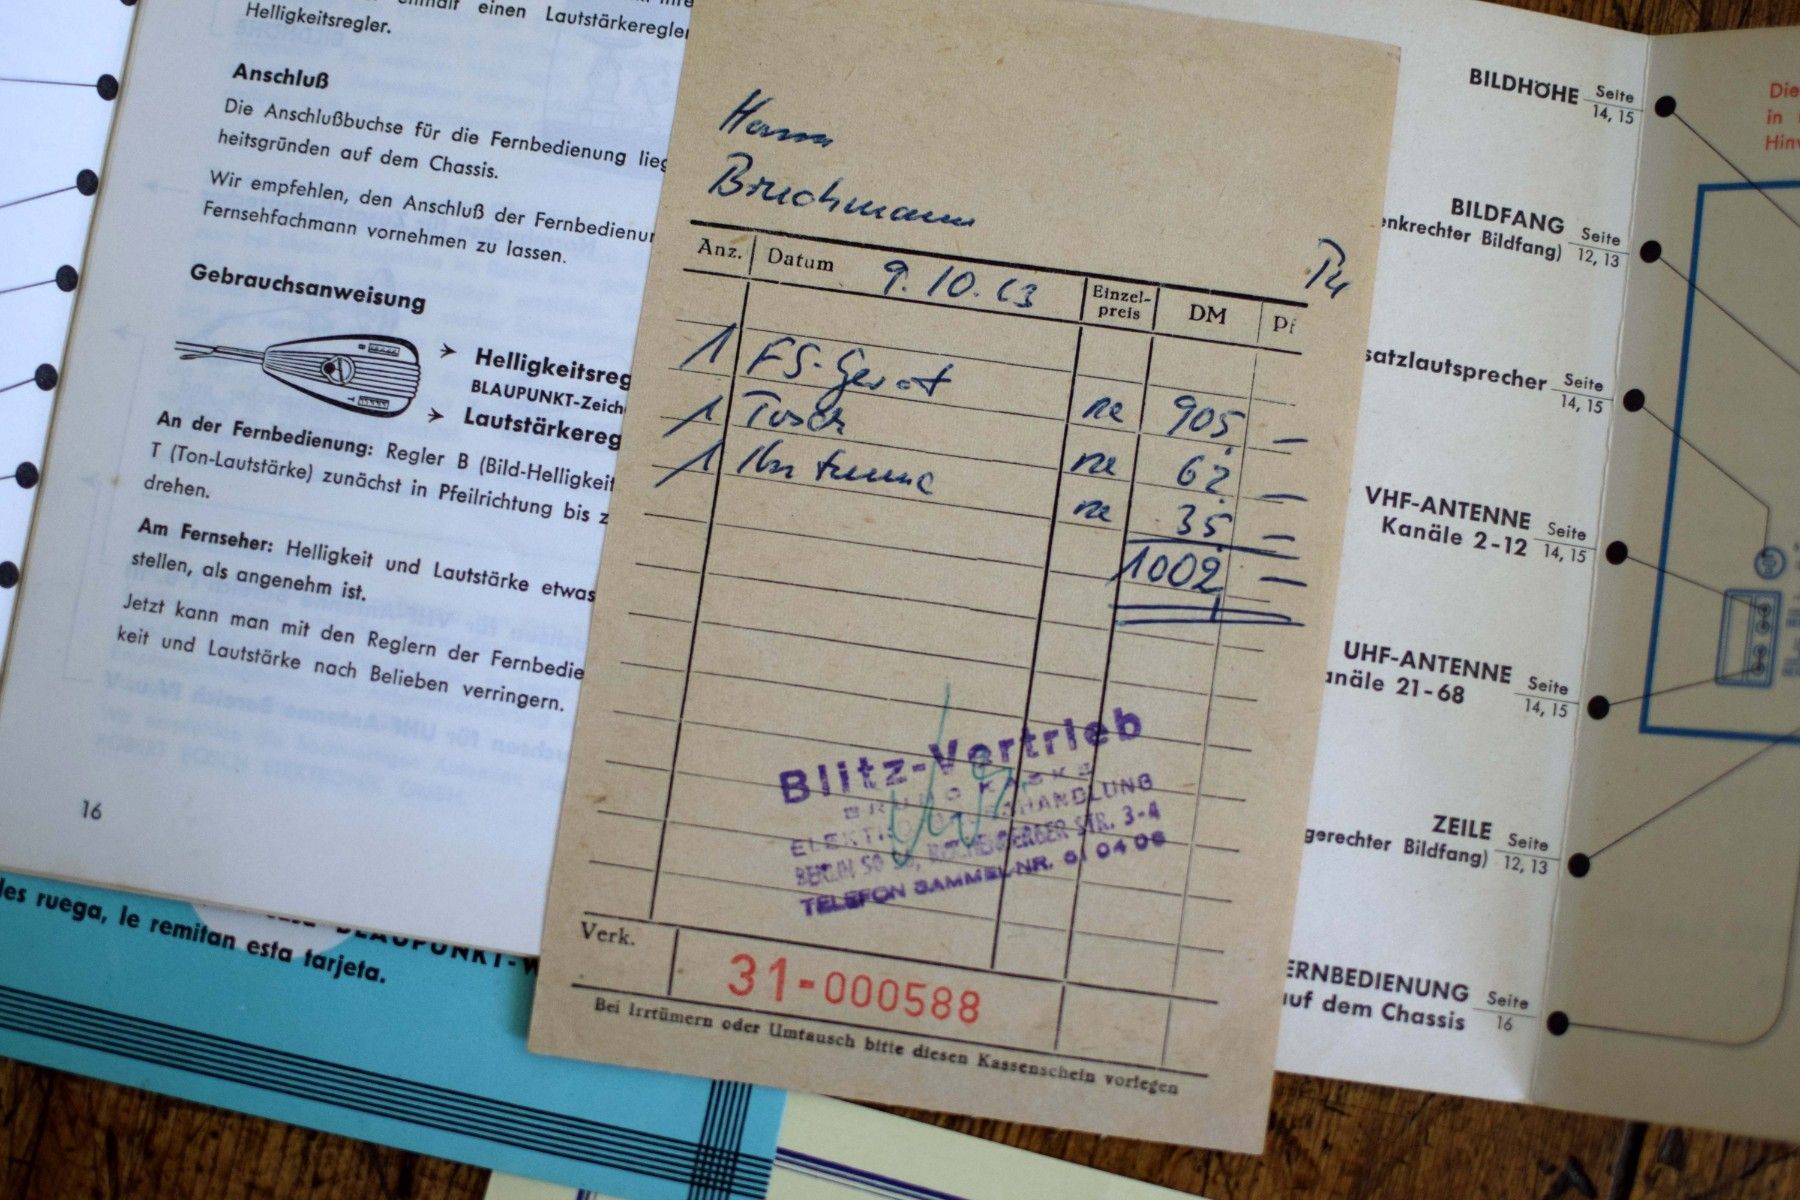 einen Lautstärkeregler
Helligkeitsregler.
Anschluß
Die Anschlußbuchse für die Fernbedienung lieg
heitsgründen auf dem Chassis.
Wir empfehlen, den Anschluß der Fernbedienun
Fernsehfachmann vornehmen zu lassen.
Gebrauchsanweisung
Helligkeitsreg
BLAUPUNKT-Zeich
Lautstärkereg
An der Fernbedienung: Regler B (Bild-Helligkeit
T (Ton-Lautstärke) zunächst in Pfeilrichtung bis z
drehen.
Am Fernseher: Helligkeit und Lautstärke etwas
stellen, als angenehm ist.
Jetzt kann man mit den Reglern der Fernbedie
keit und Lautstärke nach Belieben verringern.
16
les ruega, le remitan esta tarjeta.
BLAUPUNKT-W
Herrn
Bruchmann
Anz. Datum 9.10.63 Einzel-preis DM Pf
1 FS-Gerät
1 Tisch ne 905 —
1 ne 62 —
ne 35 —
1002 —
Blitz-Vertrieb
BRUNO KASKE
BERLIN SO 36, REICHENBERGER STR. 3-4
TELEFON SAMMEL-NR. 61 04 06
Verk. 31-000588
Bei Irrtümern oder Umtausch bitte diesen Kassenschein vorlegen
BILDHÖHE Seite 14, 15
BILDFANG Seite 12, 13
enkrechter Bildfang)
satzlautsprecher Seite 14, 15
VHF-ANTENNE Seite 14, 15
Kanäle 2-12
UHF-ANTENNE Seite 14, 15
anäle 21-68
ZEILE Seite 12, 13
gerechter Bildfang)
ERNBEDIENUNG Seite 16
auf dem Chassis
Die
in
Hinw